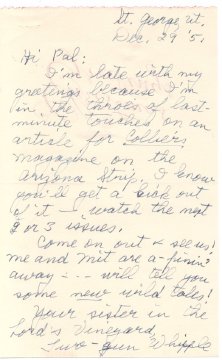 St. George, Ut.
Dec. 29 '51
Hi Pal:
I'm late with my
greetings because I'm
in the throes of last-
minute touches on an
article for Colliers
magazine on the
Arizona Strip. I know
you'll get a kick out
of it — watch the next
2 or 3 issues.
Come on out & see us!
me and Mit are a-finin'
away --- will tell you
some new wild tales!
Your sister in the
Lord's Vineyard,
Two-gun Whipple